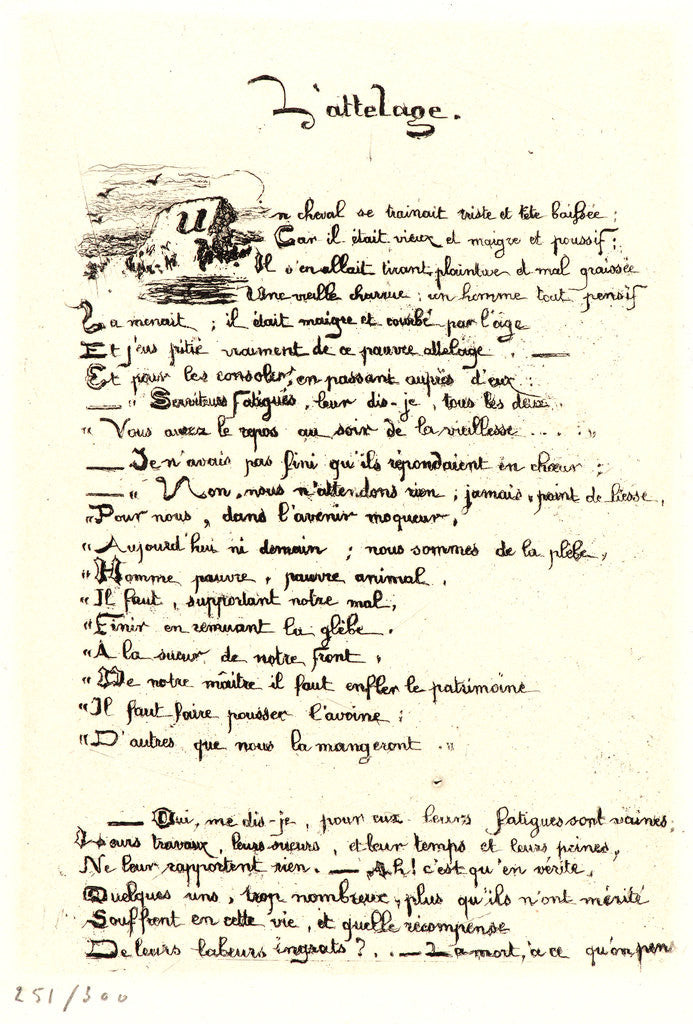 L'attelage.
Un cheval se trainait triste et tête baissée ;
Car il était vieux et maigre et poussif ;
Il s'en allait tirant, plaintive et mal graissée
Une vieille charrue ; un homme tout pensif
La menait ; il était maigre et courbé par l'âge
Et j'eus pitié vraiment de ce pauvre attelage . —
Et pour les consoler, en passant auprès d'eux :
— " Serviteurs fatigués, leur dis-je, tous les deux
" Vous aurez le repos au soir de la vieillesse . . . . "
— Je n'avais pas fini qu'ils répondaient en chœur :
— " Non, nous n'attendons rien ; jamais, point de liesse,
" Pour nous, dans l'avenir moqueur,
" Aujourd'hui ni demain ; nous sommes de la plèbe,
" Homme pauvre, pauvre animal,
" Il faut, supportant notre mal,
" Finir en remuant la glèbe.
" A la sueur de notre front,
" De notre maître il faut enfler le patrimoine
" Il faut faire pousser l'avoine ;
" D'autres que nous la mangeront . "
— Oui, me dis-je, pour eux leurs fatigues sont vaines,
Leurs travaux, leurs sueurs, et leur temps et leurs peines,
Ne leur rapportent rien. — Ah! c'est qu'en vérité,
Quelques uns, trop nombreux, plus qu'ils n'ont mérité
Souffrent en cette vie, et quelle récompense
De leurs labeurs ingrats ? . . — La mort, à ce qu'on pens
251/300